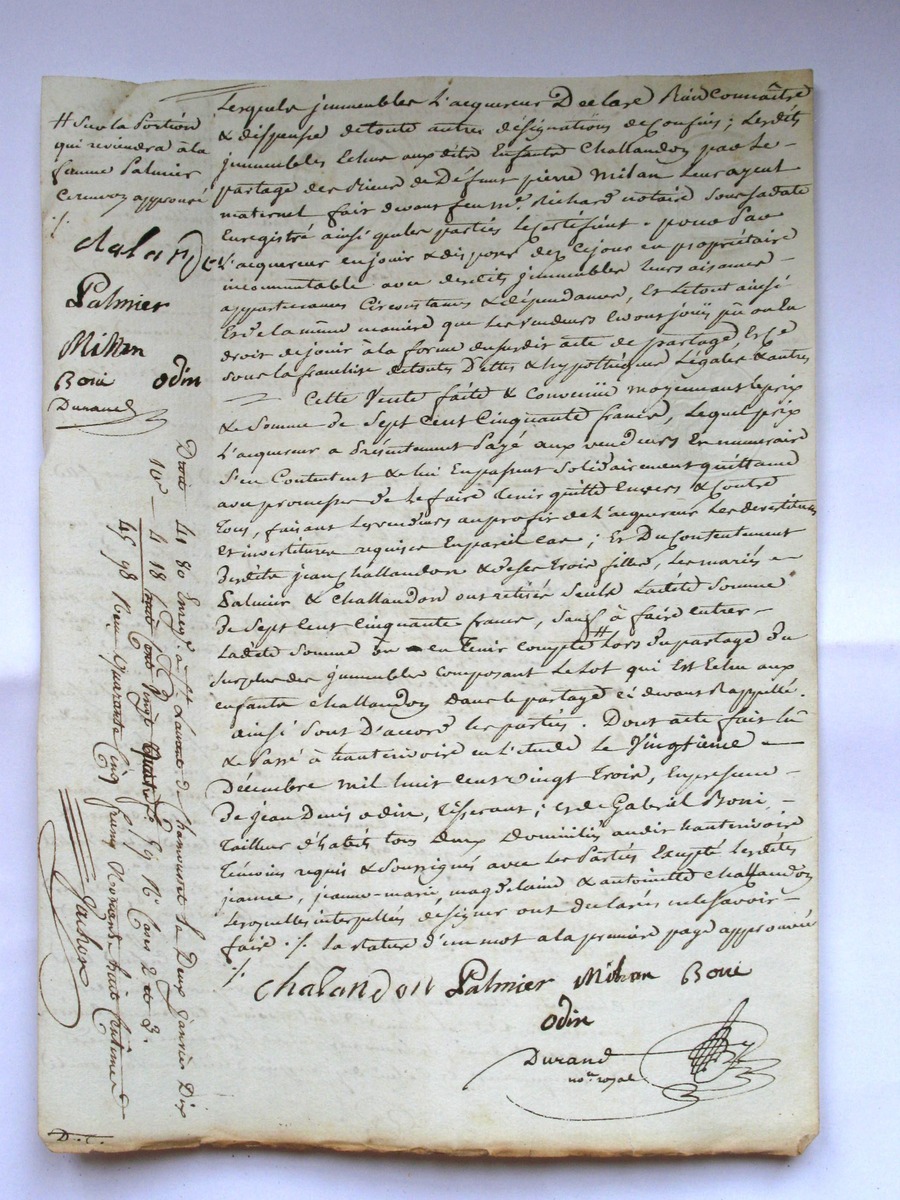 # Sur la Portion
qui reviendra à la
famme Palmier
ce renvoy approuvé
./.
chalandon
Palmier
Milan
Boni odin
Durand
lesquels jmmeubles L'acquereur Declare bien Connaitre
& dispense de toute autres désignations de Confins; Lesdits
jmmeubles Echus auxdits Enfants Challandon par Le
partage des Biens de Défunt pierre Milan Leur ayeul
maternel fait devant feu Me Richard notaire Sous sa date
Enregistré ainsi que les parties Le certifient. pour Par
L'acquereur en jouir & disposer dez Ce jour en propriétaire
incommutable avec desdits jmmeubles leurs aisances
appartenances Circonstances & dépendances, Et Le tout ainsi
Et de la même maniere que Les vendeurs En ont jouï pû ou Eu
droit de jouir à la forme du susdit acte de partage, Et Ce
sous la franchise de toutes Dettes & hypothèques Légales & autres
Cette Vente faite & Convenüe moyennant le prix
& Somme de Sept Cent Cinquante francs, Lequel prix
L'acquereur a Présentement Payé aux vendeurs En numeraire
S'en Contentent & lui En passent Solidairement quittance
avec promesse de Le faire tenir quitte Envers & Contre
Tous, faisant Les vendeurs au profit de L'acquereur Les devestitures
Et investitures requises En pareil cas; Et Du Contentement
desdits jean Challandon & de ses Trois filles, Les mariés
Palmier & Challandon ont retiré Seuls Ladite Somme
de Sept Cent Cinquante francs, Sauf à faire entrer
Ladite Somme ou en Tenir Compte # Lors du partage du
Surplus des jmmeubles Composant Le Lot qui Est Echu aux
enfants Challandon dans le partage ci devant Rappellé.
ainsi Sont D'accord les parties. Dont acte fait Lû
& Passé à hauterivoire en L'etude Le Vingtième
Décembre mil huit cent vingt Trois, En presence
de jean Denis odin, Tisserant; et de Gabriel Boni,
Tailleur d'habits tous Deux Domiciliés audit hauterivoire
Témoins requis & Soussignés avec les Parties Excepté Lesdites
jeanne, jeanne-marie, magdelaine & antoinette Challandon
Lesquelles interpellées de signer ont declarés ne le Savoir
faire ./. la rature d'un mot a la premiere page approuvée
./.
chalandon Palmier Milan Boni
odin
Durand
nore royal
Droit 41 80 Enregé. à St Laurent de Chamousset le Deux janvier Dix
10e 4 18 huit Cent Vingt quatre fo 59 No Cases 2 et 3.
45 98 Reçu Quarante Cinq francs Nonante huit Centimes
D. C.